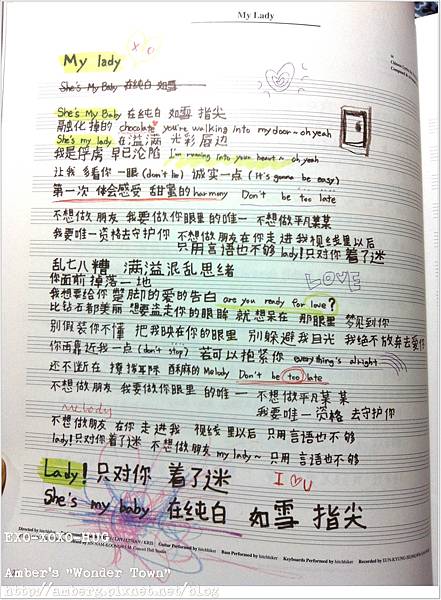 My Lady
My lady
She's My Baby 在纯白 如雪
She's My Baby 在纯白 如雪 指尖
融化掉的 chocolate you're walking into my door~ oh yeah
She's my lady 在溢满 光彩唇边
我是俘虏 早已沦陷 I'm running into your heart~ oh yeah
让我 多看你一眼 (don't lie) 诚实一点 (It's gonna be easy)
第一次 体会感受 甜蜜的 harmony Don't be too late
不想做朋友 我要做你眼里的唯一 不想做平凡某某
我要唯一资格去守护你 不想做朋友在你走进我视线里以后
只用言语也不够 lady! 只对你着了迷
乱七八糟 满溢混乱思绪
你面前掉落一地
LOVE
我想要给你 楚朎的爱的告白 are you ready for love?
比钻石都美丽 想要盖走你的眼眸 就想呆在那眼里 梦见到你
别假装你不懂 把我映在你的眼里 别躲避我目光 我绝不放弃去爱你
你再靠近我一点 (don't stop) 若可以抱紧你 everything's alright
还不断在 撩拨耳际 酥麻的 Melody Don't be too late
不想做朋友 我要做你眼里 的唯一 不想做平凡某某
melody
我要唯一资格 去守护你
不想做朋友 在你 走进我 视线里以后 只用言语也不够
lady! 只对你着了迷 不想做朋友 my lady~ 只用言语也不够
Lady! 只对你 着了迷
I ♡ U
She's my baby 在纯白 如雪 指尖
EXO-XOXO-HUG
Amber's "Wonder Town"
http://amberg.pixnet.net/blog